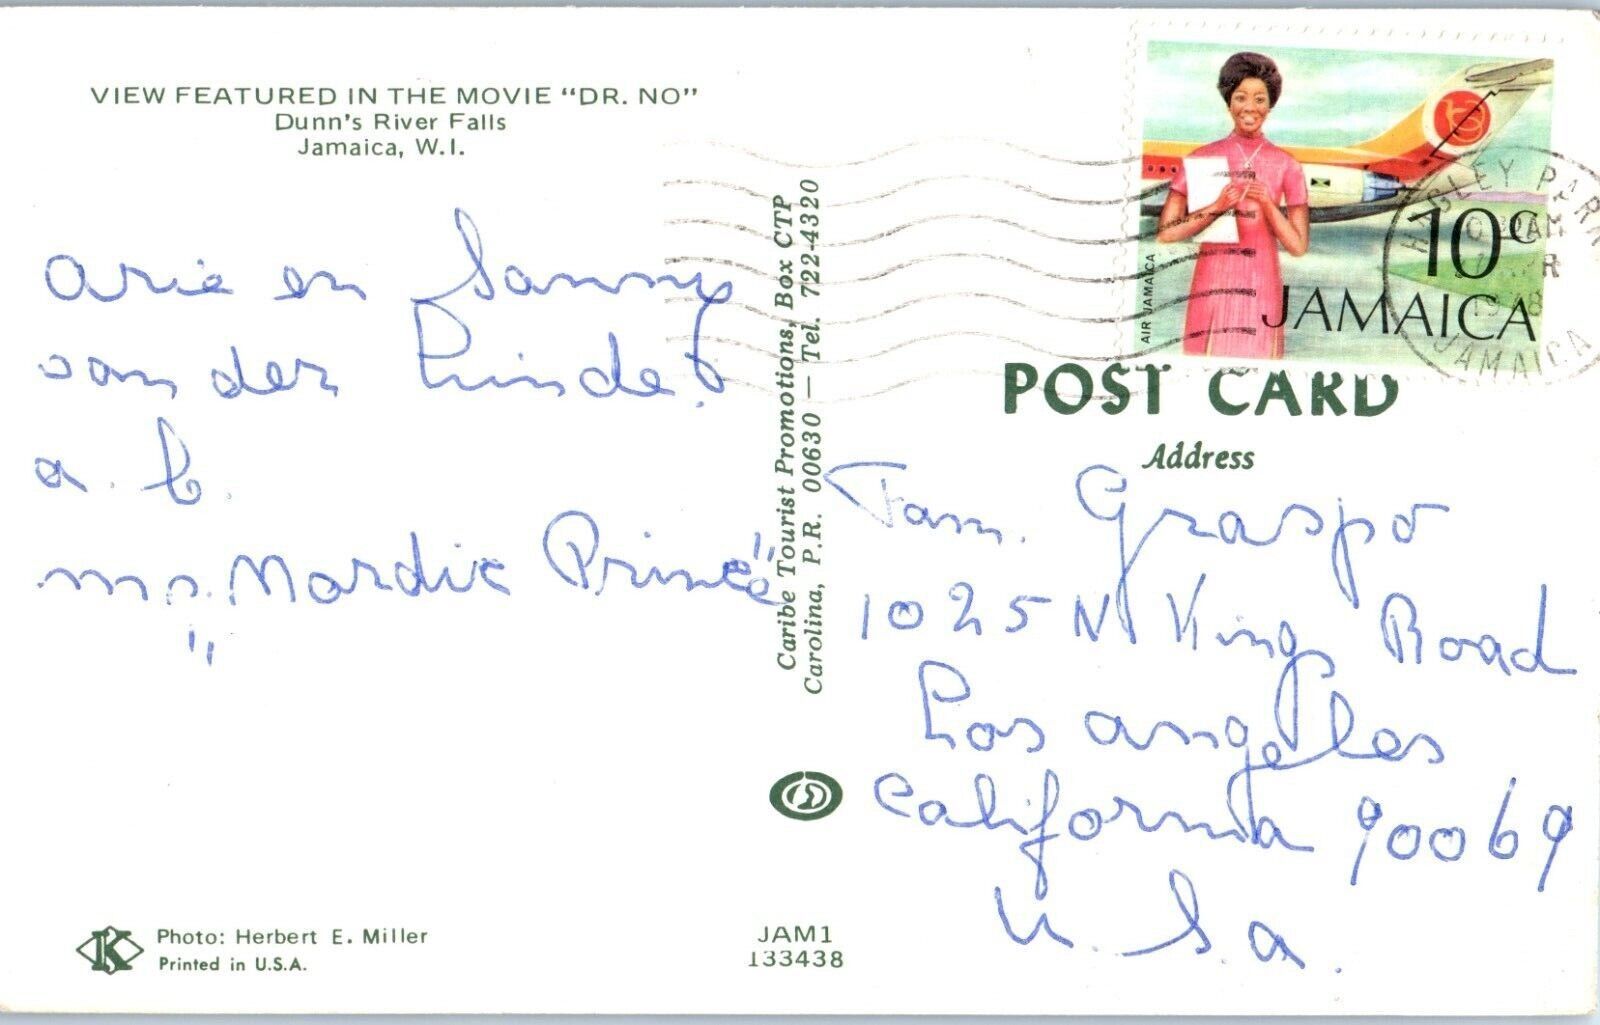 VIEW FEATURED IN THE MOVIE "DR. NO"
Dunn's River Falls
Jamaica, W.I.
Arie en Sanny
van der Linde.
a. b.
ms. "Nordic Prince"
Caribe Tourist Promotions, Box CTP
Carolina, P.R. 00630 — Tel. 722-4320
AIR JAMAICA
10c
JAMAICA
PARK
JAMAICA
POST CARD
Address
Fam. Graspo
1025 N Kings Road
Los Angeles
California 90069
U.S.A.
K
Photo: Herbert E. Miller
Printed in U.S.A.
JAM1
133438